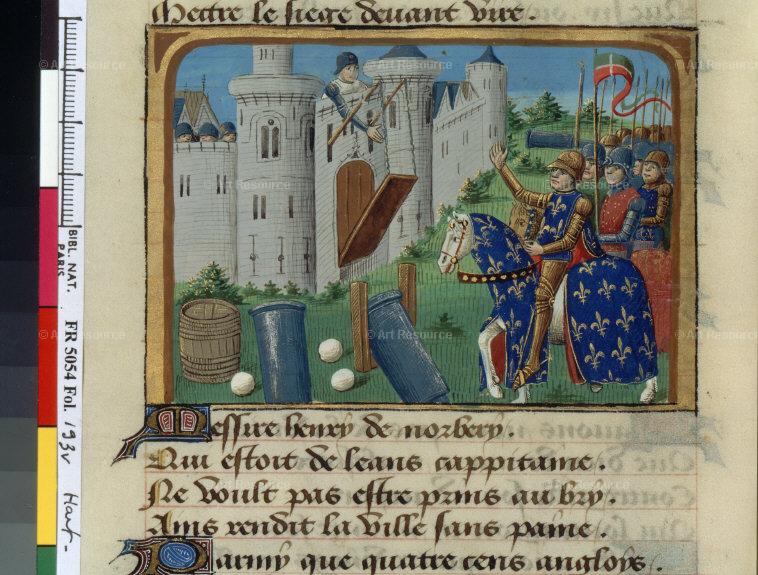 Mettre le siege devant vire.
BIBL. NAT. PARIS
FR 5054 Fol. 193v
Art Resource
Messire henry de norbery.
Qui estoit de leans cappitaine.
Ne voult pas estre prins au bry.
Ains rendit la ville sans paine.
Parmy que quatre cens angloys.